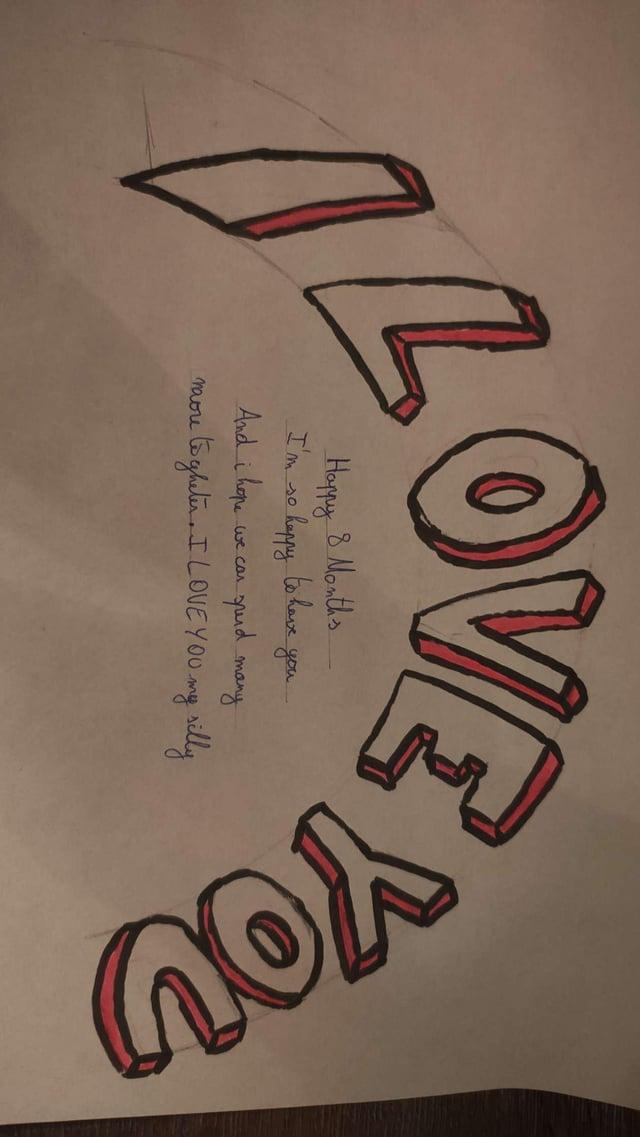 I LOVE YOU
Happy 8 Months
I'm so happy to have you
And i hope we can spend many
more togheter. I LOVE YOU my silly